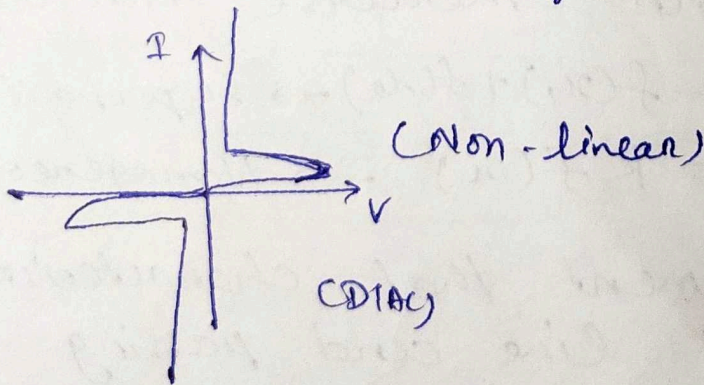 I
(Non-linear)
V
(DIAC)